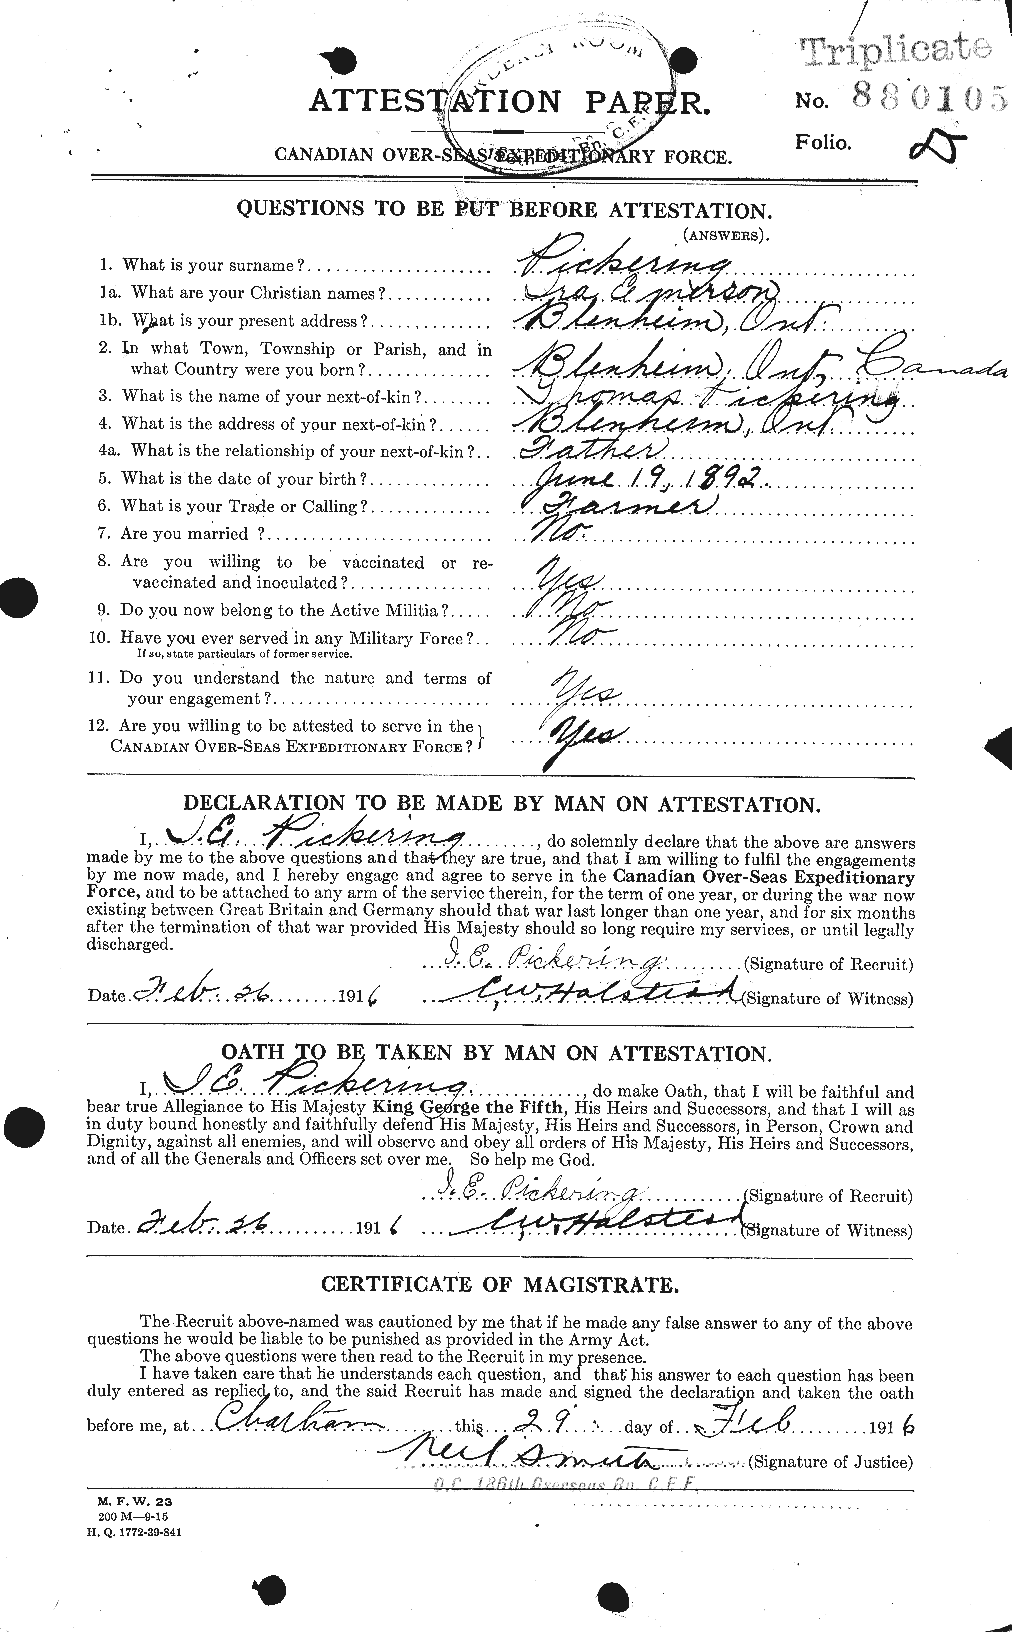 Triplicate
ORDERLY ROOM
Bn. C.E.F.
ATTESTATION PAPER.
No. 880105
Folio.
CANADIAN OVER-SEAS EXPEDITIONARY FORCE.
QUESTIONS TO BE PUT BEFORE ATTESTATION.
(ANSWERS).
1. What is your surname? Pickering
1a. What are your Christian names? Ira Emerson
1b. What is your present address? Blenheim, Ont.
2. In what Town, Township or Parish, and in
what Country were you born? Blenheim, Ont, Canada
3. What is the name of your next-of-kin? Thomas Pickering
4. What is the address of your next-of-kin? Blenheim, Ont
4a. What is the relationship of your next-of-kin? Father
5. What is the date of your birth? June 19, 1892.
6. What is your Trade or Calling? Farmer
7. Are you married ? No.
8. Are you willing to be vaccinated or re-
vaccinated and inoculated? Yes
9. Do you now belong to the Active Militia? No
10. Have you ever served in any Military Force? No
If so, state particulars of former service.
11. Do you understand the nature and terms of
your engagement? Yes
12. Are you willing to be attested to serve in the
CANADIAN OVER-SEAS EXPEDITIONARY FORCE? Yes
DECLARATION TO BE MADE BY MAN ON ATTESTATION.
I, I. E. Pickering, do solemnly declare that the above are answers
made by me to the above questions and that they are true, and that I am willing to fulfil the engagements
by me now made, and I hereby engage and agree to serve in the Canadian Over-Seas Expeditionary
Force, and to be attached to any arm of the service therein, for the term of one year, or during the war now
existing between Great Britain and Germany should that war last longer than one year, and for six months
after the termination of that war provided His Majesty should so long require my services, or until legally
discharged.
I. E. Pickering (Signature of Recruit)
Date Feb. 26 1916 C.W. Halstead (Signature of Witness)
OATH TO BE TAKEN BY MAN ON ATTESTATION.
I, I E Pickering, do make Oath, that I will be faithful and
bear true Allegiance to His Majesty King George the Fifth, His Heirs and Successors, and that I will as
in duty bound honestly and faithfully defend His Majesty, His Heirs and Successors, in Person, Crown and
Dignity, against all enemies, and will observe and obey all orders of His Majesty, His Heirs and Successors,
and of all the Generals and Officers set over me. So help me God.
I. E. Pickering (Signature of Recruit)
Date Feb. 26 1916 C.W. Halstead (Signature of Witness)
CERTIFICATE OF MAGISTRATE.
The Recruit above-named was cautioned by me that if he made any false answer to any of the above
questions he would be liable to be punished as provided in the Army Act.
The above questions were then read to the Recruit in my presence.
I have taken care that he understands each question, and that his answer to each question has been
duly entered as replied to, and the said Recruit has made and signed the declaration and taken the oath
before me, at Chatham this 29 day of Feb 1916
Neil Smith (Signature of Justice)
O.C. 186th Overseas Bn. C.E.F.
M. F. W. 23
200 M—9-15
H. Q. 1772-39-841